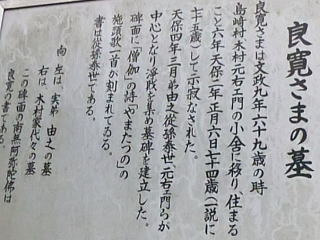 良寛さまの墓
良寛さまは文政九年六十九歳の時
島崎村木村元右エ門の小舎に移り、住まる
こと六年、天保二年正月六日七十四歳(説に
七十五歳)して示寂なされた。
天保四年三月弟由之従孫泰世、元右エ門らが
中心となり浄財を集め墓碑を建立した。
碑面に「僧伽」の詩や「またつの」の
施頭歌一首が刻まれてゐる。
書は従孫泰世である。
向 左は、実弟 由之の墓
右は、木村家代々の墓
この碑面の南無阿弥陀佛は
良寛の書である。